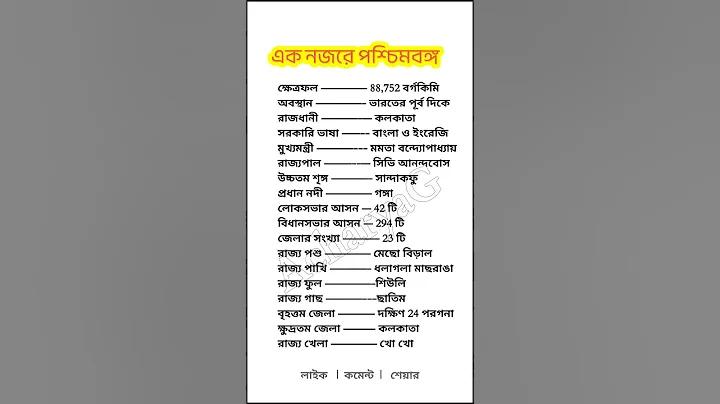 এক নজরে পশ্চিমবঙ্গ
ক্ষেত্রফল ———— 88,752 বর্গকিমি
অবস্থান ————– ভারতের পূর্ব দিকে
রাজধানী ————— কলকাতা
সরকারি ভাষা ——–– বাংলা ও ইংরেজি
মুখ্যমন্ত্রী ————–– মমতা বন্দ্যোপাধ্যায়
রাজ্যপাল ————— সিভি আনন্দবোস
উচ্চতম শৃঙ্গ ———— সান্দাকফু
প্রধান নদী ———— গঙ্গা
লোকসভার আসন — 42 টি
বিধানসভার আসন — 294 টি
জেলার সংখ্যা ——— 23 টি
রাজ্য পশু ———— মেছো বিড়াল
রাজ্য পাখি ———— ধলাগলা মাছরাঙা
রাজ্য ফুল ————–শিউলি
রাজ্য গাছ ————––ছাতিম
বৃহত্তম জেলা ——— দক্ষিণ 24 পরগনা
ক্ষুদ্রতম জেলা ——— কলকাতা
রাজ্য খেলা ———— খো খো
AcharyaG
লাইক | কমেন্ট | শেয়ার